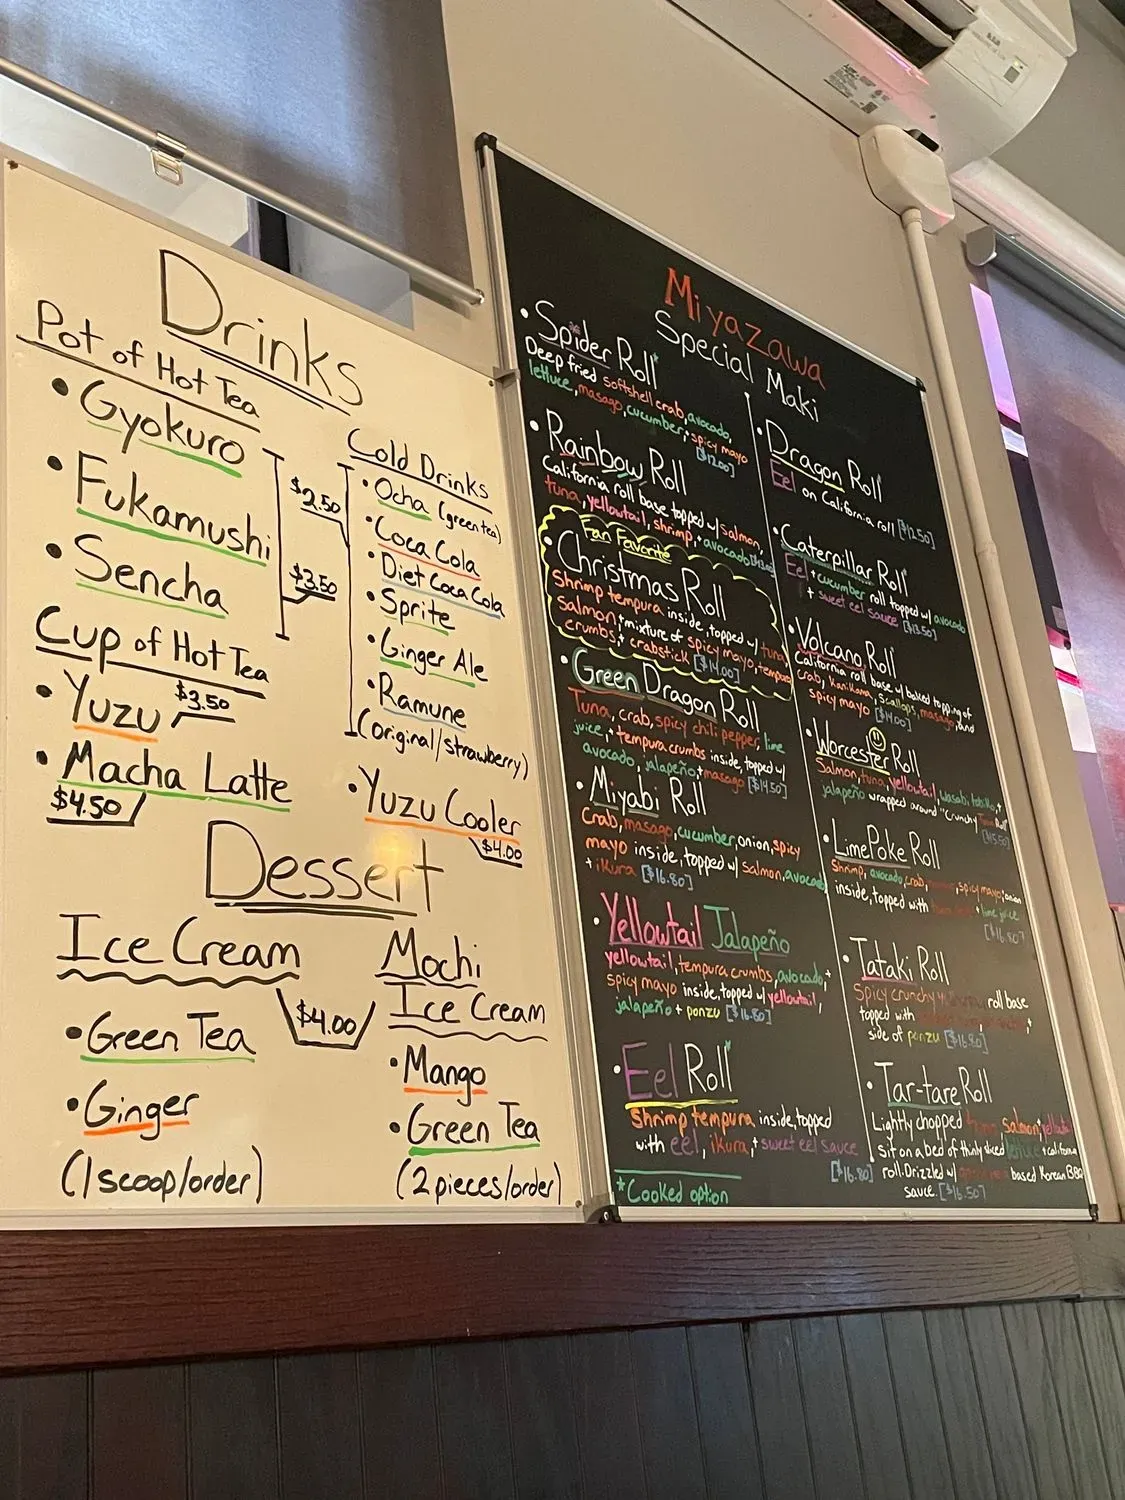 Drinks
Pot of Hot Tea
• Gyokuro
• Fukamushi
• Sencha
$3.50
Cup of Hot Tea
• Yuzu $3.50
• Macha Latte
$4.50
Cold Drinks
$2.50
• Ocha (green tea)
• Coca Cola
• Diet Coca Cola
• Sprite
• Ginger Ale
• Ramune
(original/strawberry)
• Yuzu Cooler
$4.00
Dessert
Ice Cream
$4.00
• Green Tea
• Ginger
(1 scoop/order)
Mochi
Ice Cream
• Mango
• Green Tea
(2 pieces/order)
Miyazawa
Special Maki
• Spider Roll*
Deep fried softshell crab, avocado,
lettuce, masago, cucumber, + spicy mayo
[$12.00]
• Rainbow Roll
California roll base topped w/ salmon,
tuna, yellowtail, shrimp, + avocado
Fan Favorite
• Christmas Roll
Shrimp tempura inside, topped w/ tuna,
salmon, + mixture of spicy mayo, tempura
crumbs, + crabstick [$14.00]
• Green Dragon Roll
Tuna, crab, spicy chili pepper, lime
juice, + tempura crumbs inside, topped w/
avocado, jalapeño, + masago [$14.50]
• Miyabi Roll
Crab, masago, cucumber, onion, spicy
mayo inside, topped w/ salmon, avocado
+ ikura [$16.80]
• Yellowtail Jalapeño
yellowtail, tempura crumbs, avocado, +
spicy mayo inside, topped w/ yellowtail,
jalapeño + ponzu [$16.80]
• Eel Roll*
Shrimp tempura inside, topped
with eel, ikura, + sweet eel sauce
[$16.80]
*Cooked option
• Dragon Roll*
Eel on California roll [$12.50]
• Caterpillar Roll*
Eel + cucumber roll topped w/ avocado
+ sweet eel sauce [$13.50]
• Volcano Roll*
California roll base w/ baked topping of
crab, Kanikama, scallops, masago, and
spicy mayo [$14.00]
• Worcester Roll
Salmon, tuna, yellowtail, wasabi tobiko, +
jalapeño wrapped around "Crunchy Roll"
• Lime Poke Roll
Shrimp, avocado, crab, spicy mayo, onion
inside, topped with + lime juice
[$16.50]
• Tataki Roll
Spicy crunchy roll base
topped with +
side of ponzu [$16.80]
• Tar-tare Roll
Lightly chopped salmon, + yellowtail
sit on a bed of thinly sliced lettuce + california
roll. Drizzled w/ based Korean BBQ
sauce. [$16.50]